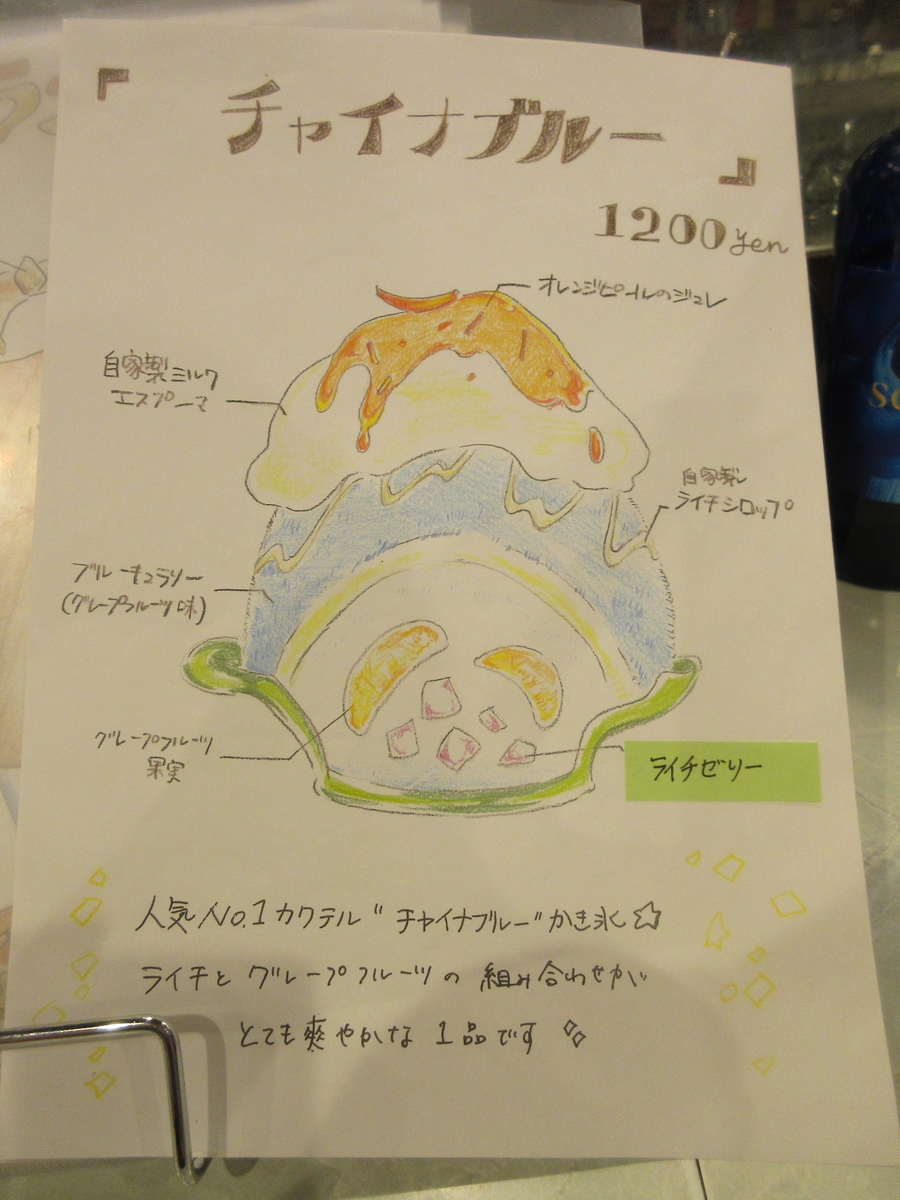 『チャイナブルー』
1200yen
オレンジピールのジュレ
自家製ミルク
エスプーマ
自家製
ライチシロップ
ブルーキュラソー
(グレープフルーツ味)
グレープフルーツ
果実
ライチゼリー
人気No.1カクテル"チャイナブルー"かき氷☆
ライチとグレープフルーツの組み合わせが
とても爽やかな1品です